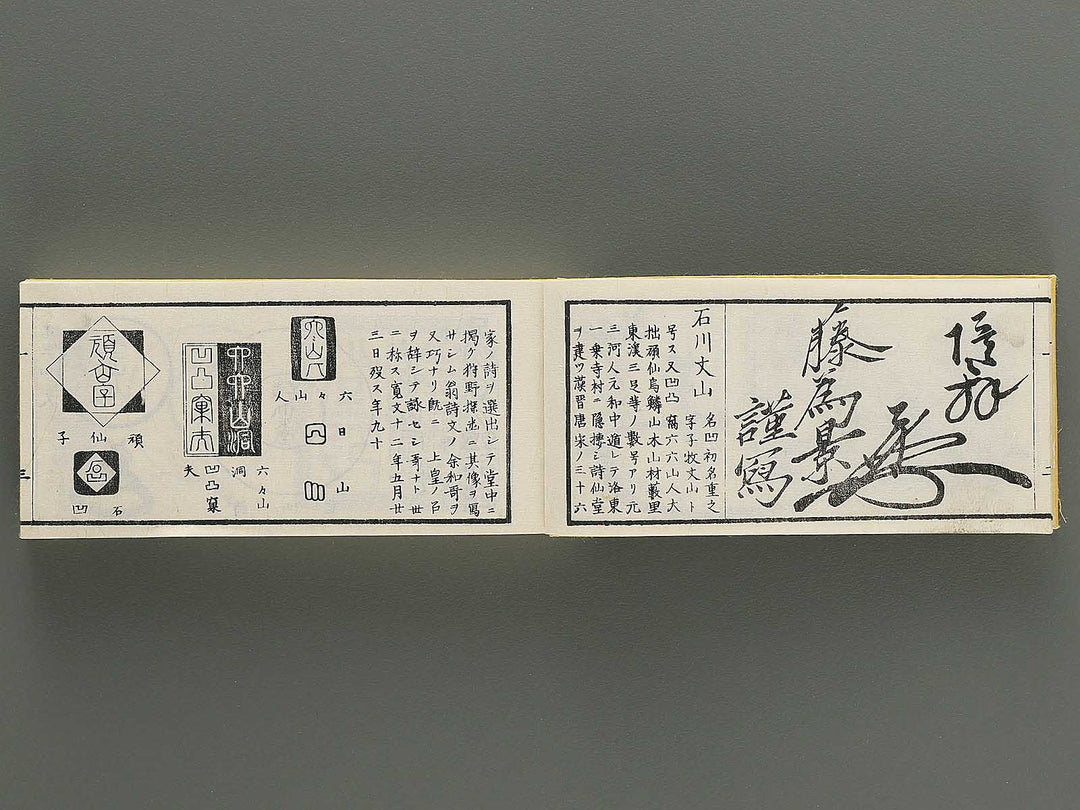 藤為景
謹寫
石川丈山
名凹初名重之
字子牧丈山ト
号ス又凹凸窩六六山人大
拙頑仙烏鱗山木山材藪里
東渓三足等ノ數号アリ元
三河人元和中遁レテ洛東
一乗寺村ニ隠棲シ詩仙堂
ヲ建ツ漢晋唐宋ノ三十六
家ノ詩ヲ選出シテ堂中ニ
掲グ狩野探幽ニ其像ヲ寫
サシム翁詩文ノ余和哥ヲ
又巧ナリ既ニ上皇ノ召
ヲ辞シテ詠セシ哥ナト世
ニ称ス寛文十二年五月廿
三日歿ス年九十
六々山人
日
山
六々山洞
凹凸窠夫
頑仙子
石凹